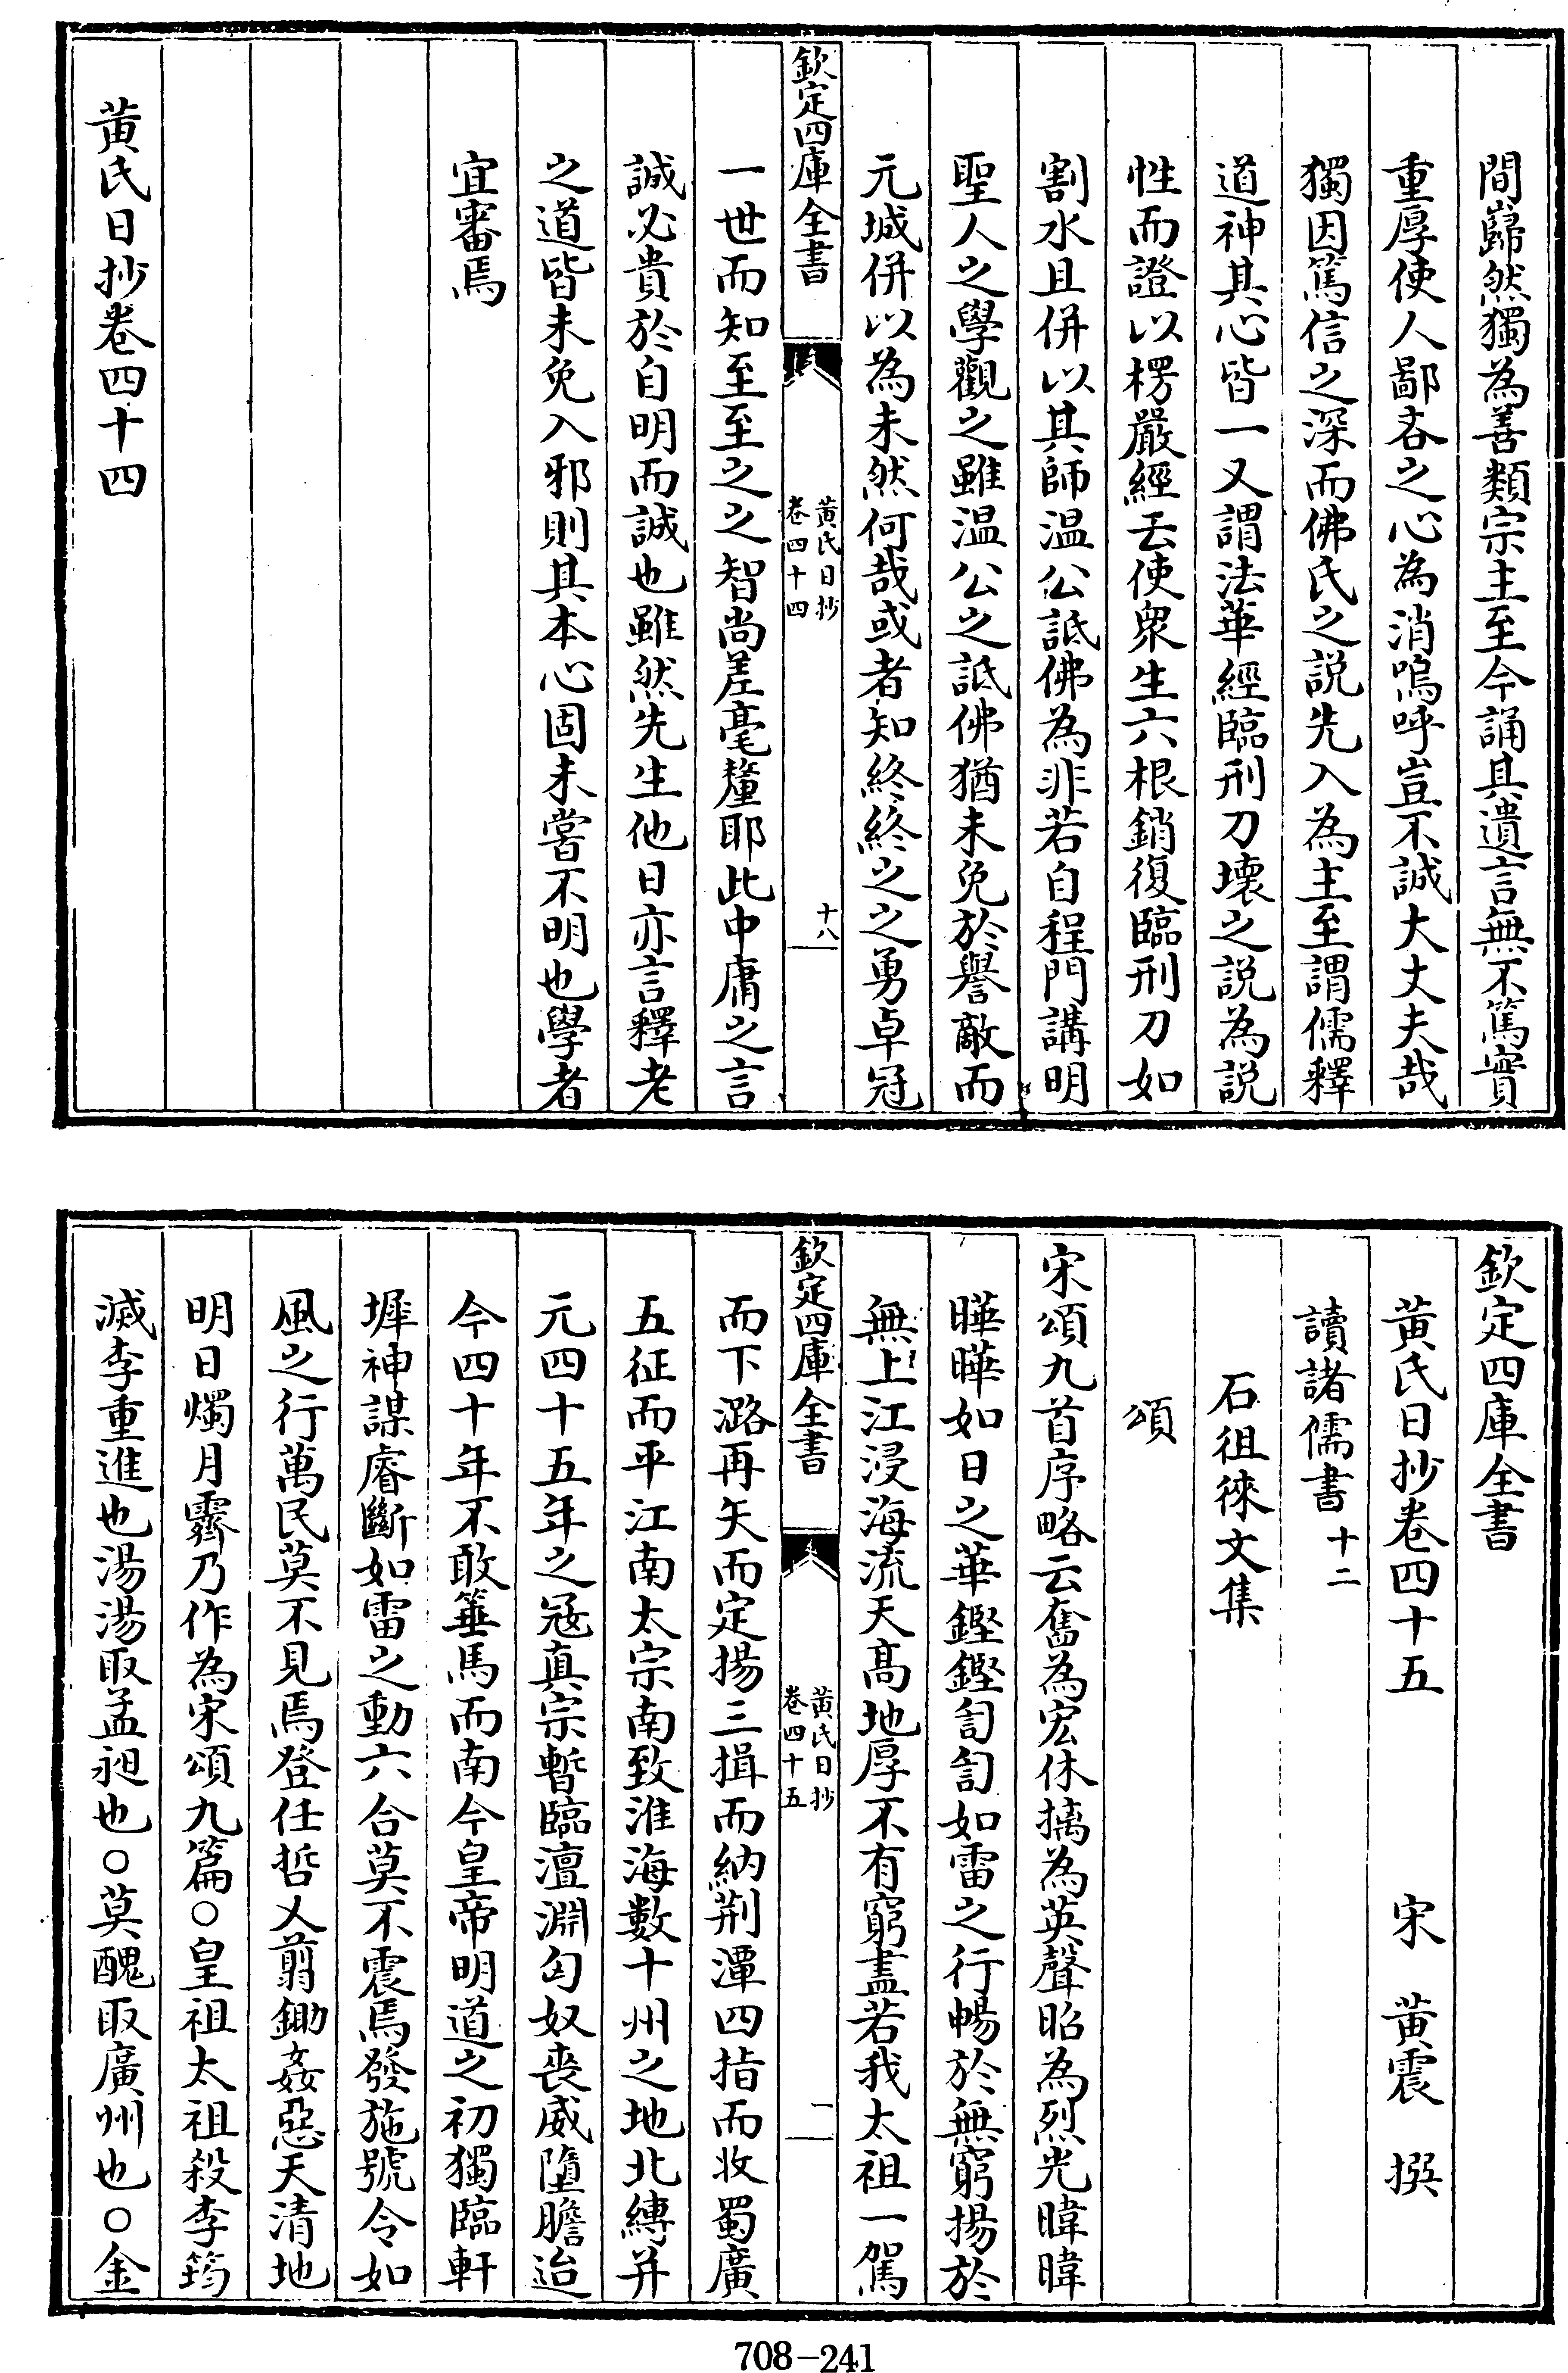 間巋然獨為善類宗主至今誦其遺言無不篤實
重厚使人鄙吝之心為消嗚呼豈不誠大丈夫哉
獨因篤信之深而佛氏之説先入為主至謂儒釋
道神其心皆一又謂法華經臨刑刀壞之説為説
性而證以楞嚴經云使衆生六根銷復臨刑刀如
割水且併以其師温公詆佛為非若自程門講明
聖人之學觀之雖温公之詆佛猶未免於譽敵而
元城併以為未然何哉或者知終終之之勇卓冠
欽定四庫全書
黄氏日抄
卷四十四
十八
一世而知至至之之智尚差毫釐耶此中庸之言
誠必貴於自明而誠也雖然先生他日亦言釋老
之道皆未免入邪則其本心固未嘗不明也學者
宜審焉
黄氏日抄卷四十四
欽定四庫全書
黄氏日抄卷四十五 宋 黄震 撰
讀諸儒書十二
石徂徠文集
頌
宋頌九首序略云奮為宏休摛為英聲昭為烈光暐暐
曄曄如日之華鏗鏗訇訇如雷之行暢於無窮揚於
無上江浸海流天高地厚不有窮盡若我太祖一駕
欽定四庫全書
黄氏日抄
卷四十五
一
而下潞再矢而定揚三揖而納荆潭四指而收蜀廣
五征而平江南太宗南致淮海數十州之地北縛并
元四十五年之冦真宗暫臨澶淵匈奴喪威墮膽迨
今四十年不敢箠馬而南今皇帝明道之初獨臨軒
墀神謀睿斷如雷之動六合莫不震焉發施號令如
風之行萬民莫不見焉登任哲乂翦鋤姦惡天清地
明日燭月霽乃作為宋頌九篇○皇祖太祖殺李筠
滅李重進也湯湯取孟昶也○莫醜取廣州也○金
708-241